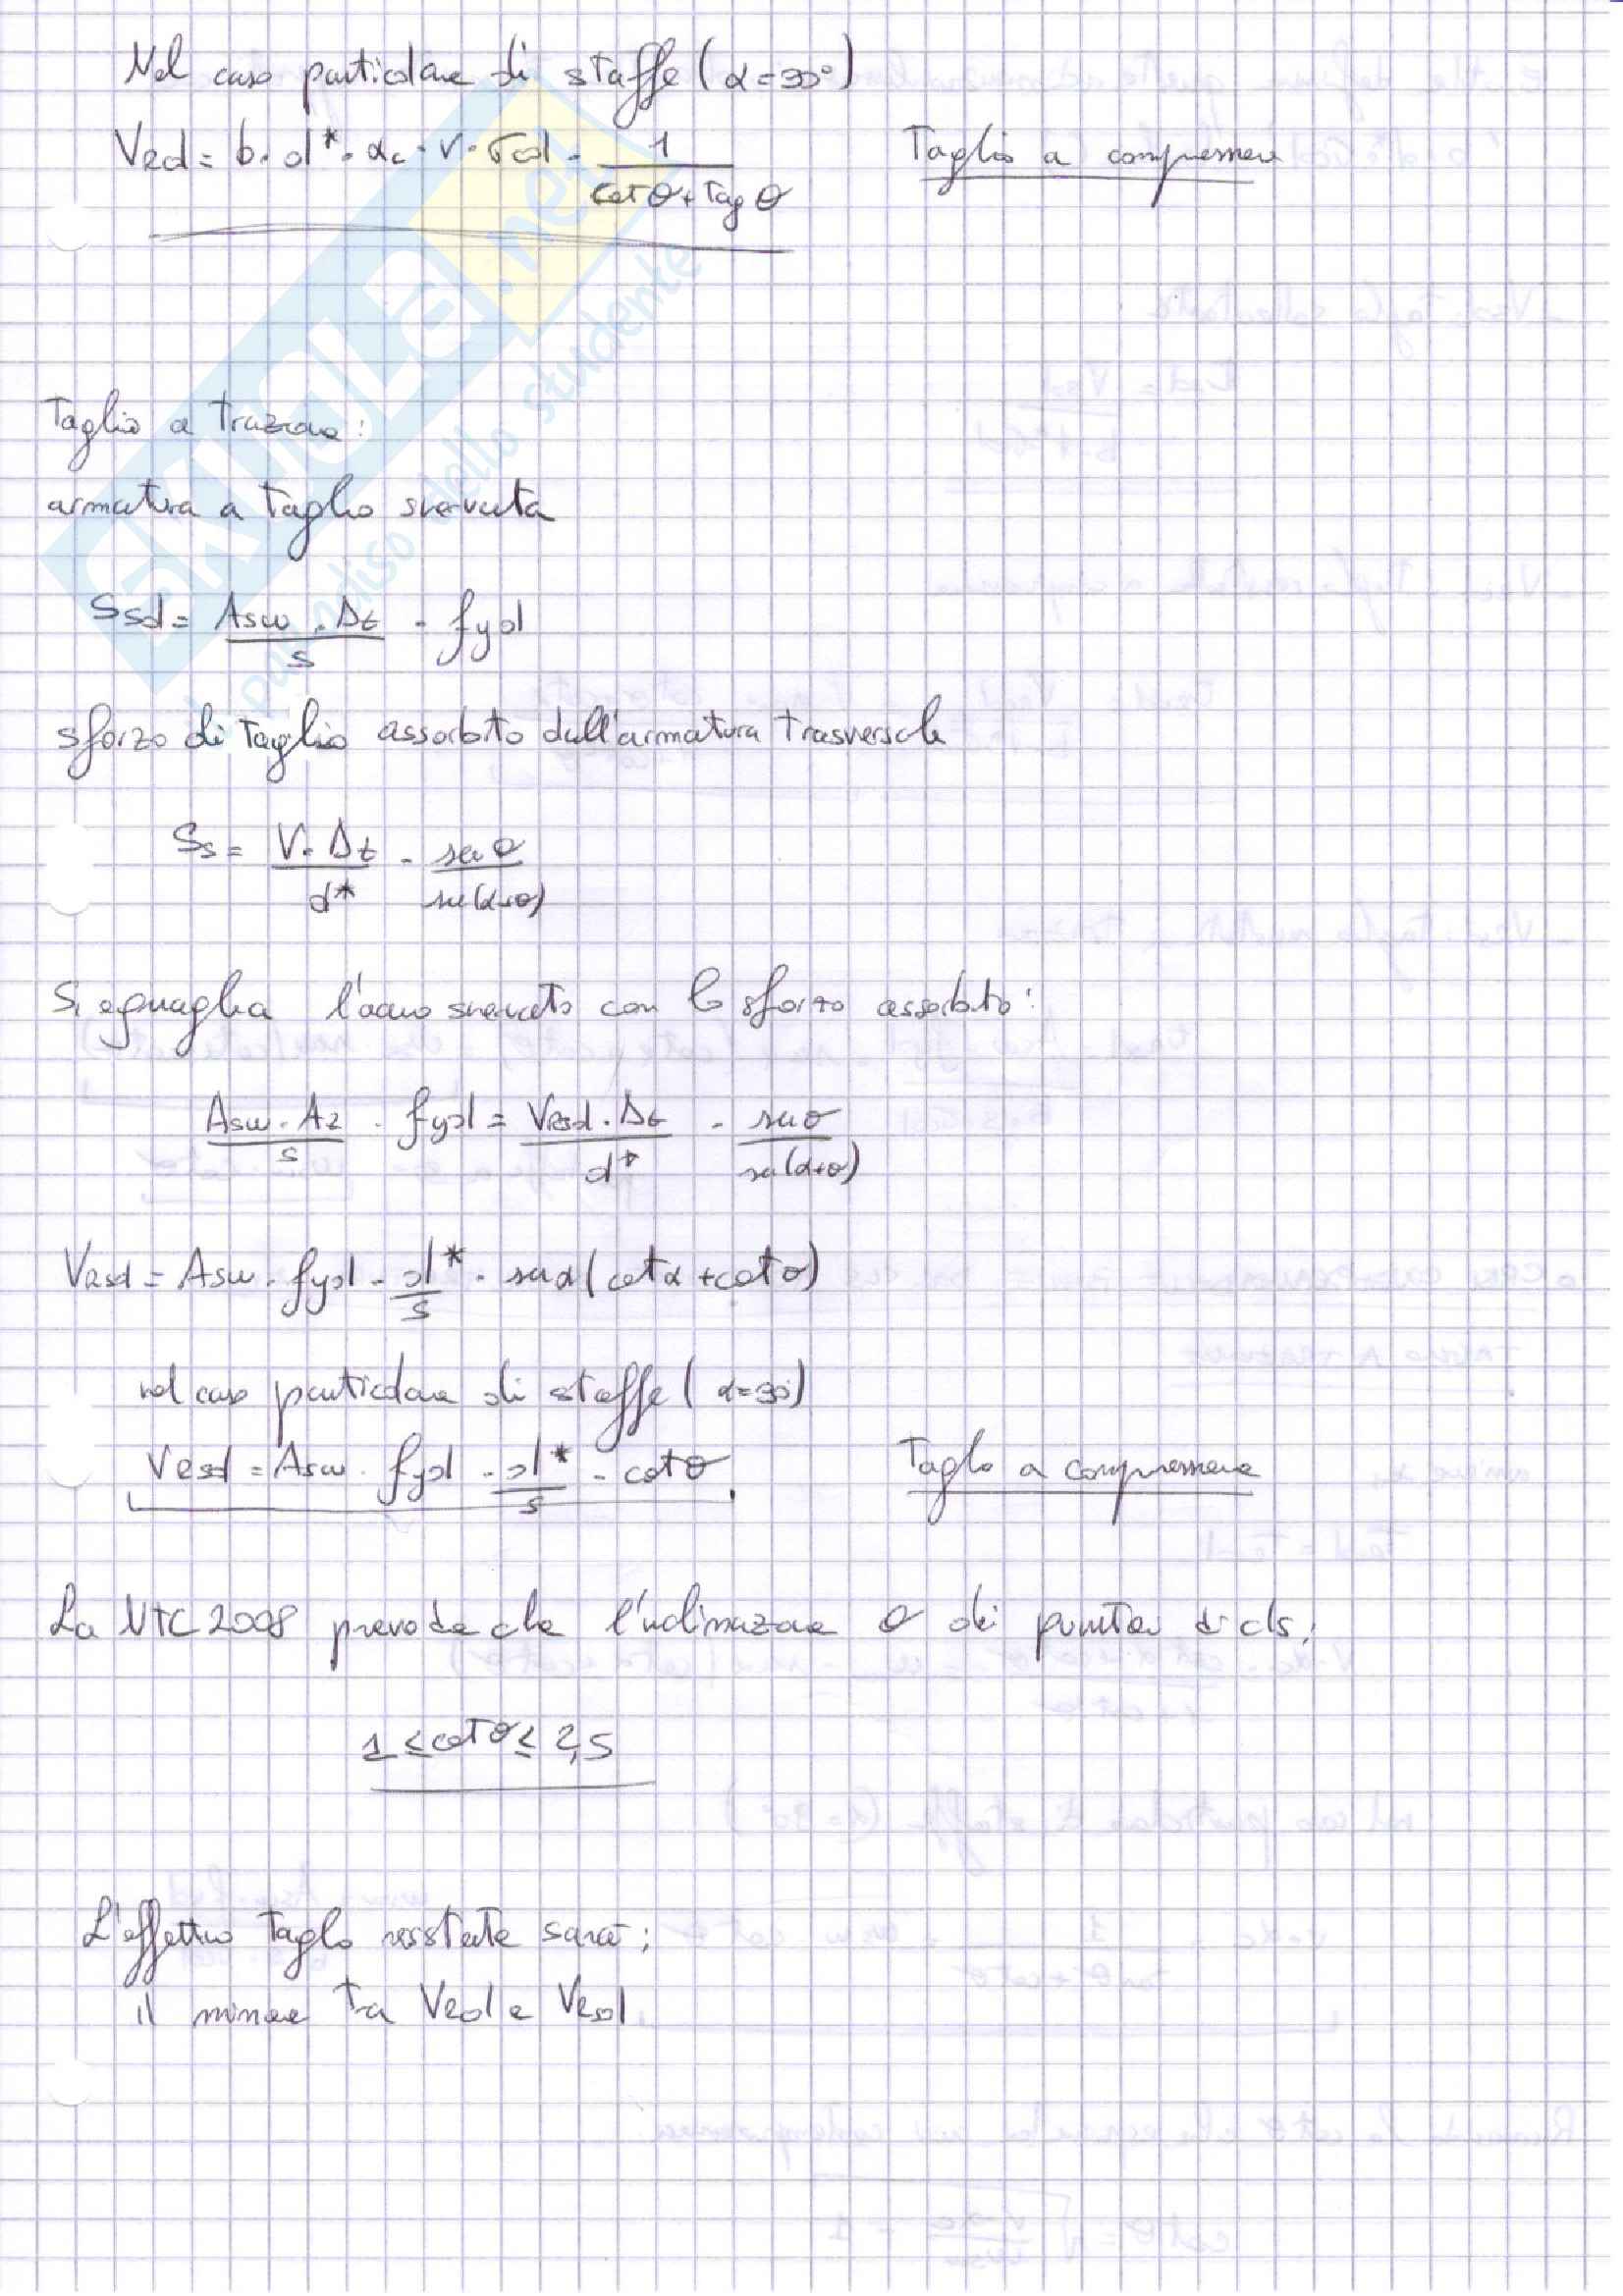 Nel caso particolare di staffe (α=90°)
VRd = b · d* · αc · ν · fcd · 1 / (cotθ + tagθ) Taglio a compressione
Taglio a trazione:
armatura a taglio snervata
Ssd = Asw · Δz / s · fyd
sforzo di taglio assorbito dall'armatura trasversale
Ss = V · Δz / d* · senθ / sen(α+θ)
Si eguaglia l'acciaio snervato con lo sforzo assorbito:
Asw · Δz / s · fyd = VRsd · Δz / d* · senθ / sen(α+θ)
VRsd = Asw · fyd · d* / s · senα (cotα + cotθ)
nel caso particolare di staffe (α=90°)
VRsd = Asw · fyd · d* / s · cotθ Taglio a compressione
La NTC 2008 prevede che l'inclinazione θ dei puntoni di cls:
1 ≤ cotθ ≤ 2,5
L'effettivo taglio resistente sarà:
il minore tra VRd e VRsd
SKUOLA.net
il paradiso dello studente